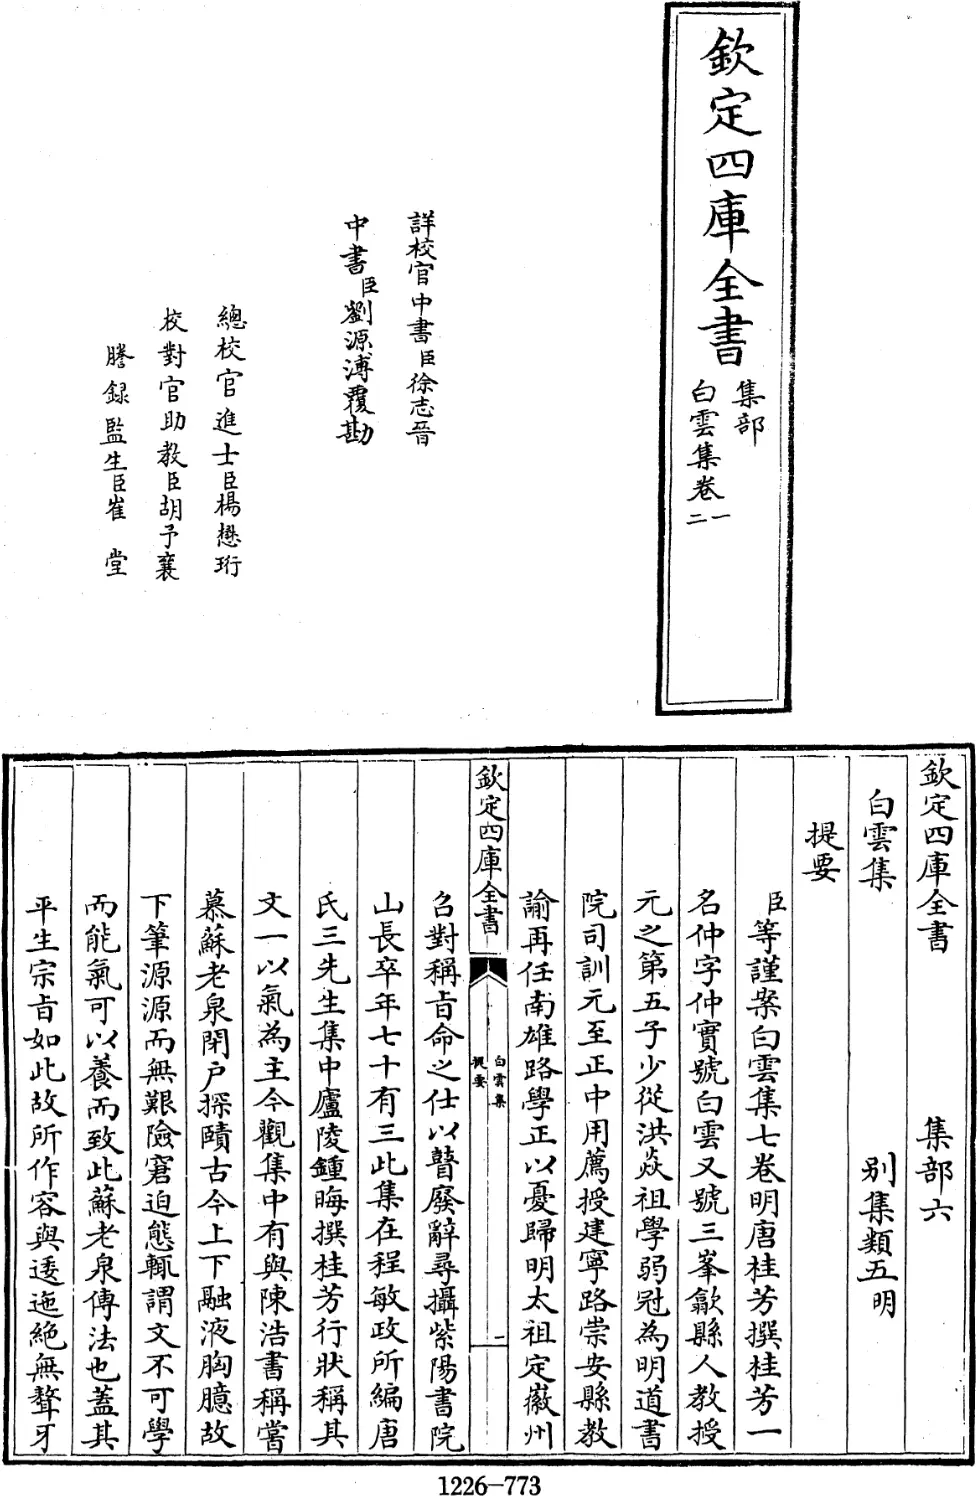 欽定四庫全書
集部
白雲集卷一
二
詳校官中書臣徐志晉
中書臣劉源溥覆勘
總校官進士臣楊懋珩
校對官助教臣胡予襄
謄録監生臣崔堂
欽定四庫全書 集部六
白雲集 别集類五明
提要
臣等謹案白雲集七卷明唐桂芳撰桂芳一
名仲字仲實號白雲又號三峯歙縣人教授
元之第五子少從洪焱祖學弱冠為明道書
院司訓元至正中用薦授建寧路崇安縣教
諭再任南雄路學正以憂歸明太祖定徽州
欽定四庫全書
白雲集
提要
一
召對稱旨命之仕以瞽廢辭尋攝紫陽書院
山長卒年七十有三此集在程敏政所編唐
氏三先生集中廬陵鍾晦撰桂芳行狀稱其
文一以氣為主今觀集中有與陳浩書稱嘗
慕蘇老泉閉户探賾古今上下融液胸臆故
下筆源源而無艱險窘迫態輒謂文不可學
而能氣可以養而致此蘇老泉傳法也蓋其
平生宗旨如此故所作容與逶迤絶無聱牙
1226-773